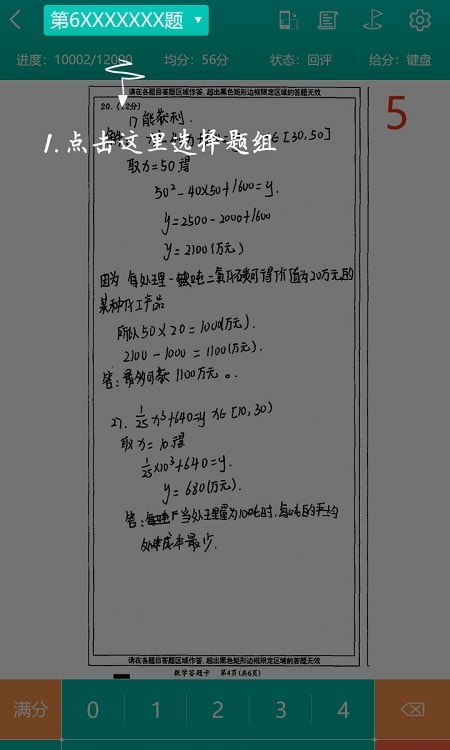 第6XXXXXXX题
进度：10002/12000 均分：56分 状态：回评 给分：键盘
请在各题目答题区域作答，超出黑色矩形边框限定区域的答题无效
5
20.（12分）
1.点击这里选择题组
取x=50得
50²-40×50+1600=y.
y=2500-2000+1600
y=2100(万元)
因为 每处理一吨二氧化碳可得价值为20万元的
某种化工产品
所以50×20=1000(万元).
2100-1000=1100(万元).
答：最多可获1100万元。
27. 1/25 x³+640=y x∈[10,30)
取x=10得
1/25×10³+640=y.
y=680(万元).
答：当处理量为10吨时,每吨的平均
处理成本最少.
请在各题目答题区域作答，超出黑色矩形边框限定区域的答题无效
数学答题卡 第4页(共6页)
满分 0 1 2 3 4